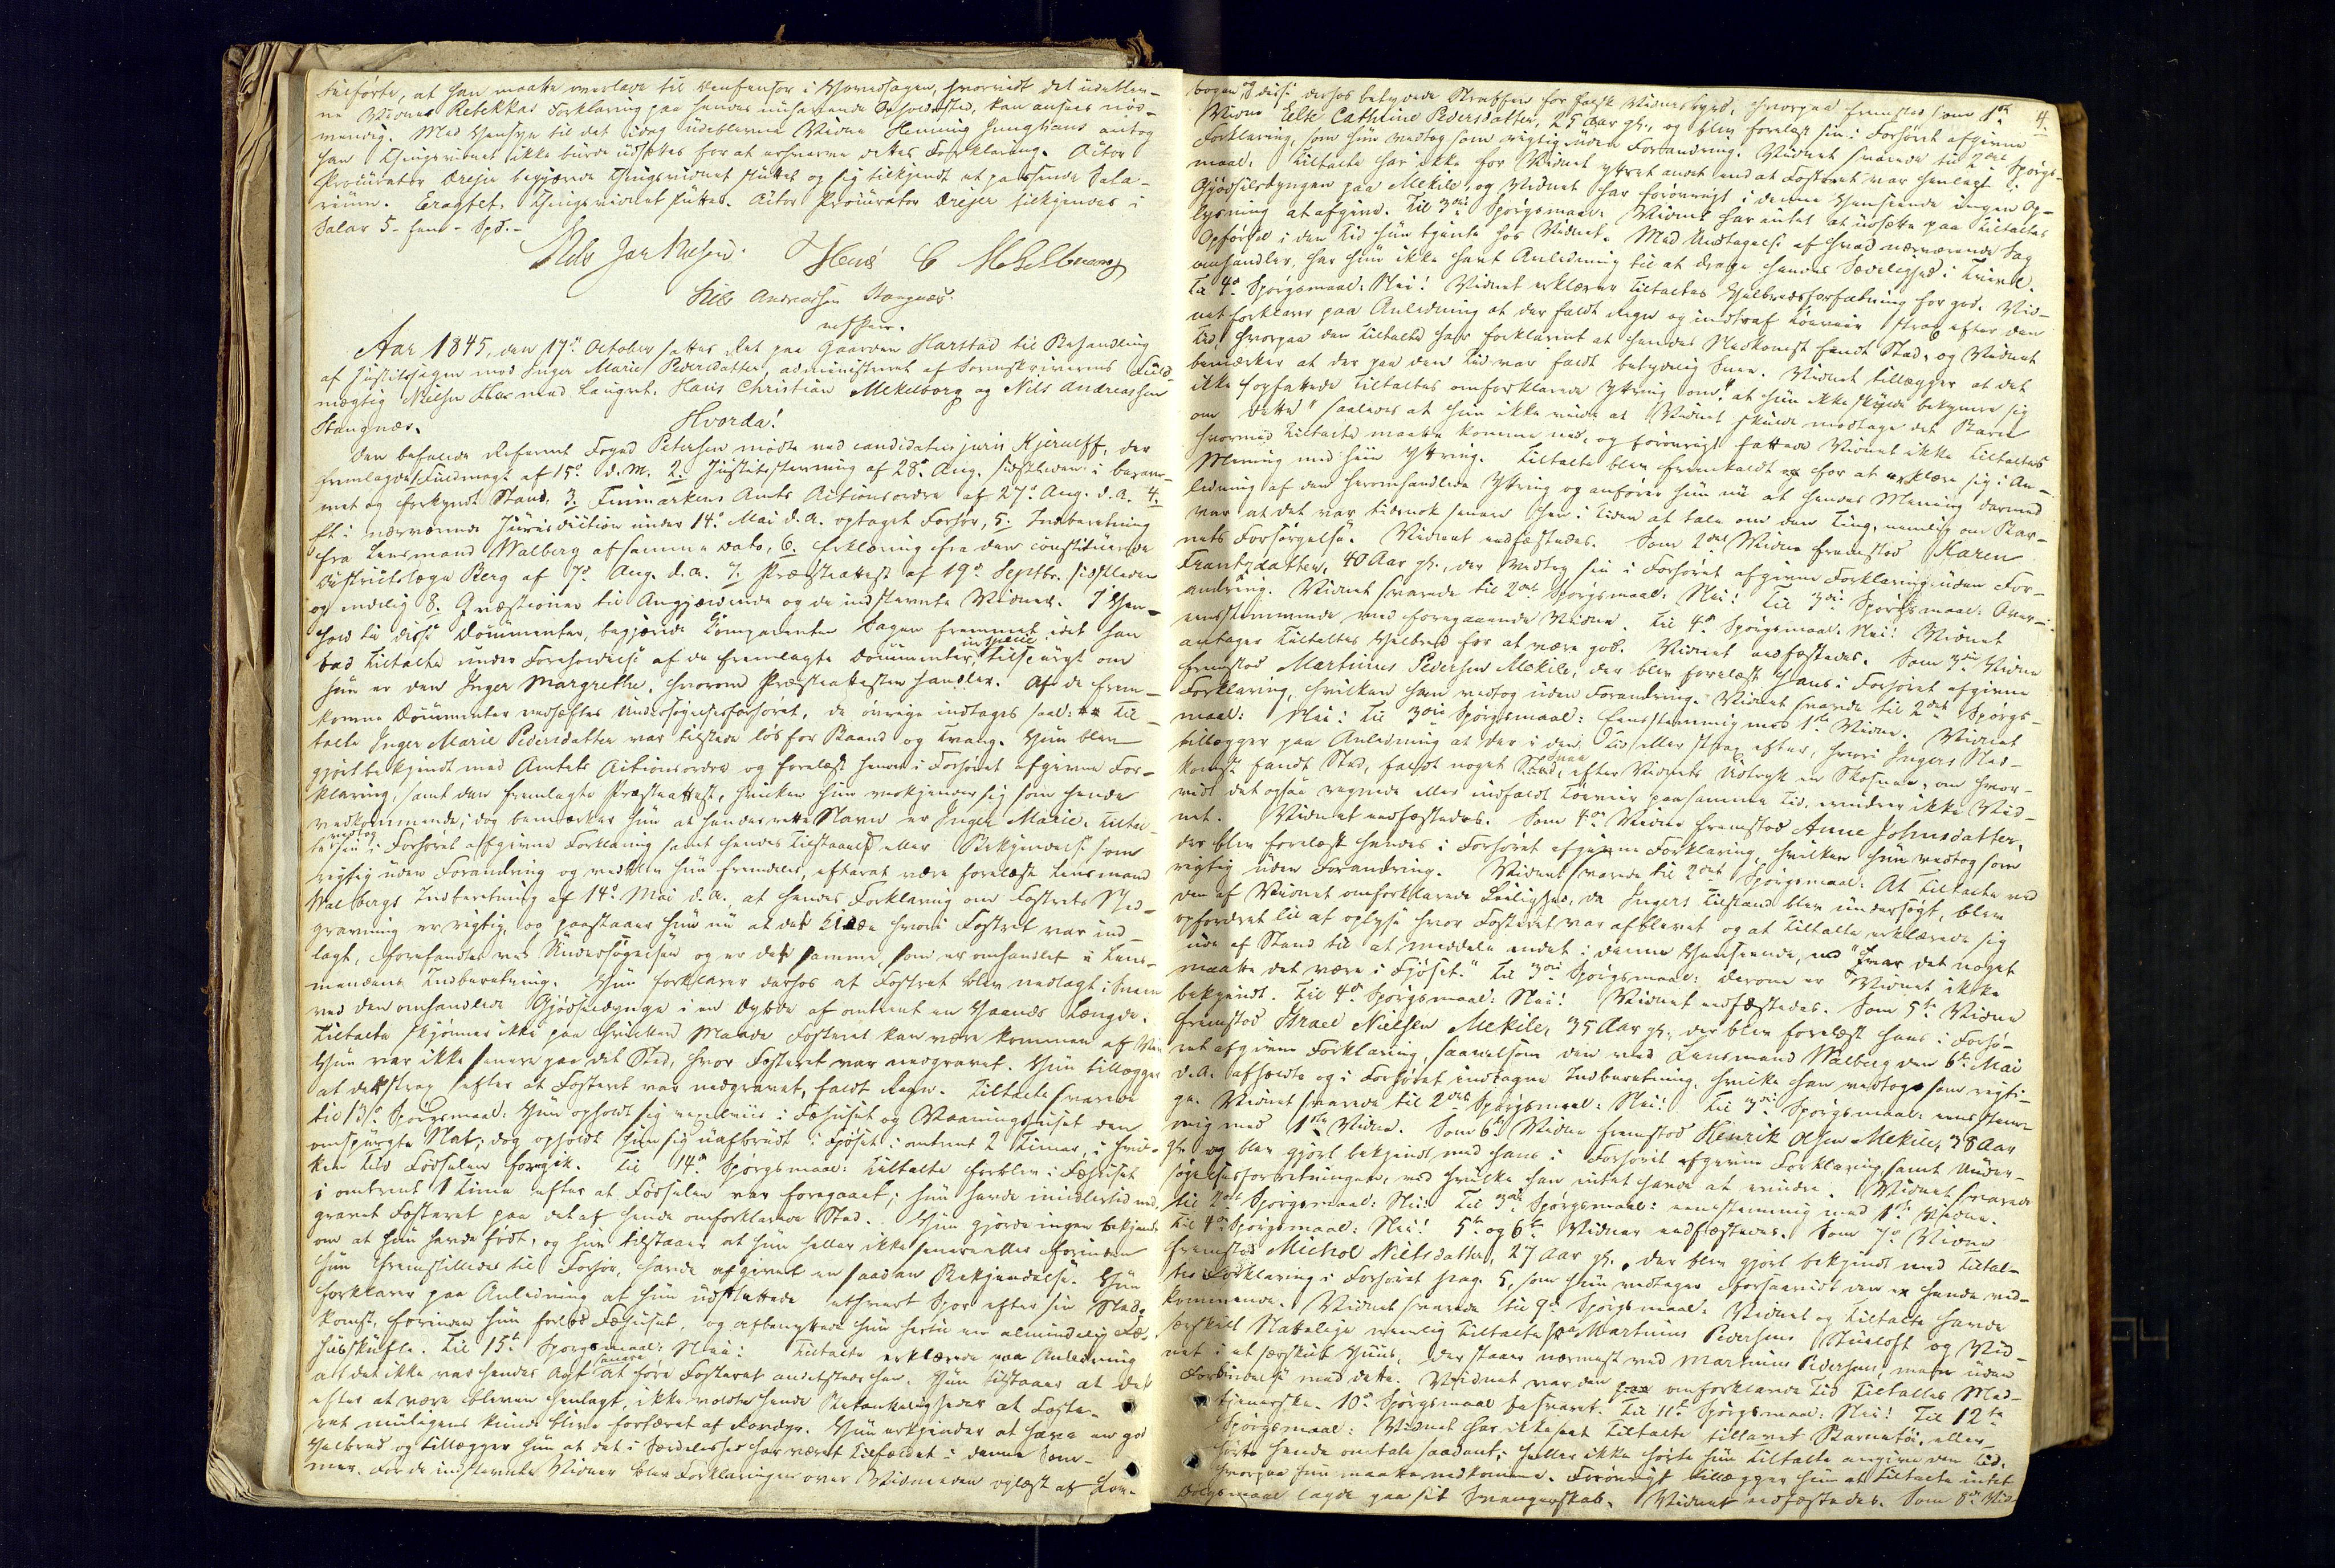 tilførte, at han maatte overlade til Defensor i Hovedsagen, hvorvidt det udebliv-
ne Vidnes Rebekkas Forklaring paa hendes nuhavende Opholdssted, kan ansees nød-
vendig. Med Hensyn til det idag udeblevne Vidne Henning Junghans antog
han Thingsvidnet ikke burde udsættes for at erhverve dettes Forklaring. Actor
Procurator Dreyer begjærede Thingsvidnet sluttet og sig tilkjendt et passende Sala-
rium. Eragtet: Thingsvidnet sluttes. Actor Procurator Dreyer tilkjendes i
Salar 5 - fem - Spd. -
Hans C Mekelborg
Nils Andreassen Stangnæs.
Aar 1845, den 17de October sattes Ret paa Gaarden Harstad til Behandling
af Justitssagen mod Inger Marie Pedersdatter, administreret af Sorenskriverens Fuld-
mægtig Nielsen med Laugret, Hans Christian Mekelborg og Nils Andreassen
Stangnæs.
Hvorda!
Den befalede Referent Foged Petersen mødte ved candidatus juris Kjerulff, der
fremlagde 1 Fuldmagt af 15de d. M. 2. Justitsstevning af 28de Aug. sidstleden i beram-
met og forkyndt Stand, 3. Finmarkens Amts Actionsordre af 27de Aug. d. A. 4.
Et i nærværende Jurisdiction under 14de Mai d. A. optaget Forhør, 5. Indberetning
fra Lensmand Walberg af samme Dato, 6. Erklæring fra den constituerede
Districtslæge Berg af 7de Aug. d. A. 7. Præsteattest af 19de Septbr. sidstleden
og endelig 8. Qvæstioner til Angjældende og de indstevnte Vidner. I Hen-
hold til disse Documenter, begjærede Comparenten Sagen fremmet idet han
in specie
bad Tiltalte under Foreholdelse af de fremlagte Documenter, tilspurgt om
hun er den Inger Margrethe, hvorom Præsteattesten handler. Af de frem-
komne Documenter vedhæftes Undersøgelsesforhøret, de øvrige indtages saal: Til-
talte Inger Marie Pedersdatter var tilstede løs for Baand og Tvang. Hun blev
gjort bekjendt med Amtets Actionsordre og forelæst hendes i Forhøret afgivne For-
klaring, samt den fremlagte Præsteattest, hvilken hun vedkjender sig som hende
vedkommende; dog bemærker hun at hendes rette Navn er Inger Marie. Tiltal-
vedtog
te sin i Forhøret afgivne Forklaring samt hendes Tilstaaelse eller Bekjendelse som
rigtig uden Forandring og vedtager hun fremdeles, efterat være forelæst Lensmand
Walbergs Indberetning af 14de Mai d. A., at hendes Forklaring om Fostrets Ned-
gravning er rigtig, og paastaaer hun nu at det Klæde hvori Fostret var ind-
lagt, forefandtes ved Undersøgelsen og er det samme, som er omhandlet i Lens-
mandens Indberetning. Hun forklarer derhos at Fostret blev nedlagt i Sneen
ved den omhandlede Gjødseldynge i en Dybde af omtrent en Haands Længde.
Tiltalte skjønner ikke paa hvilken Maade Fosteret kan være kommen af
Hun var ikke senere paa det Sted, hvor Fosteret var nedgravet. Hun tillægger
at det strax efter at Fosteret var nedgravet, faldt Regn. Tiltalte svarede
til 13de Spørgsmaal: Hun opholdt sig vexelviis i Fæhuset og Vaaningshuset den
omspurgte Nat; dog opholdt hun sig uafbrudt i Fjøset i omtrent 2 Timer, i hvil-
ken Tid Fødselen foregik. Til 14de Spørgsmaal: Tiltalte forblev i Fæhuset
i omtrent 1 Time efter at Fødselen var foregaaet; hun havde imidlertid ned-
gravet Fosteret paa det af hende omforklarede Sted. Hun gjorde ingen bekjendt
om at hun havde født, og hun tilstaaer at hun heller ikke senere eller forinden
hun fremstilledes til Forhør, havde afgivet en saadan Bekjendelse. Hun
forklarer paa Anledning at hun udslettede ethvert Spor efter sin Ned-
komst, forinden hun forlod Fæhuset, og afbenyttede hun hertil en almindelig Fæ-
husskuffe. Til 15de Spørgsmaal: Nei! Tiltalte erklærede paa Anledning
senere
at det ikke var hendes Agt at føre Fosteret andetsteds hen. Hun tilstaaer at det
efter at være bleven henlagt, ikke voldte hende Betænkeligheder at Foste-
ret muligens kunde blive fortæret af Fordyr. Hun erkjender at have en god
Helbred og tillægger hun at det i Særdeleshed har været Tilfældet i denne Som-
mer. For de indstevnte Vidner blev Forklaringen over Vidneeden oplæst af Lov-
4.
bogen og disse derhos betydede Straffen for falsk Vidnesbyrd, hvorpaa fremstod som 1ste
Vidne Else Cathrine Pedersdatter, 25 Aar gl., og blev forelæst sin i Forhøret afgivne
Forklaring, som hun vedtog som rigtig uden Forandring. Vidnet svarede til 2det Spørgs-
maal: Tiltalte har ikke for Vidnet yttret andet end at Fosteret var henlagt i
Gjødseldyngen paa Mekile, og Vidnet har forøvrigt i denne Henseende ingen Op-
lysning at afgive. Til 3die Spørgsmaal: Vidnet har intet at udsætte paa Tiltaltes
Opførsel i den Tid hun tjente hos Vidnet. Med Undtagelse af hvad nærværende Sag
omhandler, har hun ikke havt Anledning til at drage hendes Sædelighed i Tvivl.
Til 4de Spørgsmaal: Nei! Vidnet erklærer Tiltaltes Helbredsforfatning for god. Vid-
net forklarer paa Anledning at der faldt Regn og indtraf Tøeveir strax efter den
Tid, hvorpaa den Tiltalte har forklaret at hendes Nedkomst fandt Sted, og Vidnet
bemærker at der paa den Tid var faldt betydelig Snee. Vidnet tillægger at det
ikke opfattede Tiltaltes omforklarede Yttring om "at hun ikke skulde bekymre sig
om dette" saaledes at hun ikke meente at Vidnet skulde modtage det Barn
hvormed Tiltalte maatte komme ned, og forøvrigt fattede Vidnet ikke Tiltaltes
Mening med hiin Yttring. Tiltalte blev fremkaldt for at erklære sig i An-
ledning af den heromhandlede Yttring og anfører hun nu at hendes Mening dermed
var at det var tidsnok senere hen i Tiden at tale om den Ting, nemlig om Bar-
nets Forsørgelse. Vidnet endfæstedes. Som 2det Vidne fremstod Karen
Frantzdatter, 40 Aar gl., der vedtog sin i Forhøret afgivne Forklaring uden For-
andring. Vidnet svarede til 2det Spørgsmaal: Nei! Til 3die Spørgsmaal: Over-
eensstemmende med foregaaende Vidne. Til 4de Spørgsmaal: Nei! Vidnet
antager Tiltaltes Helbred for at være god. Vidnet eedfæstedes. Som 3die Vidne
fremstod Martinus Pedersen Mekile, der blev forelæst hans i Forhøret afgivne
Forklaring, hvilken han vedtog uden Forandring. Vidnet svarede til 2det Spørgs-
maal: Nei! Til 3die Spørgsmaal: Eensstemmig med 1ste Vidne. Vidnet
tillægger paa Anledning at der i den Tid eller strax efter, hvori Ingers Ned-
Snee
komst fandt Sted, faldt noget efter Vidnets Udtryk en Skosnee, om hvor-
vidt det ogsaa regnede eller indfaldt Tøeveir paa samme Tid, erindrer ikke Vid-
net. Vidnet eedfæstedes. Som 4de Vidne fremstod Anne Johnsdatter,
der blev forelæst hendes i Forhøret afgivne Forklaring, hvilken hun vedtog som
rigtig uden Forandring. Vidnet svarede til 2det Spørgsmaal: At Tiltalte ved
den af Vidnet omforklarede Leilighed, da Ingers Tilstand blev undersøgt, blev
opfordret til at oplyse hvor Fosteret var afblevet og at Tiltalte erklærede sig
ude af Stand til at meddele andet i denne Henseende, end "hvar det noget
maatte det være i Fjøset." Til 3die Spørgsmaal: Derom er Vidnet ikke
bekjendt. Til 4de Spørgsmaal: Nei! Vidnet eedfæstedes. Som 5te Vidne
fremstod Israel Nielsen Mekile, 35 Aar gl., der blev forelæst hans i Forhø-
ret afgivne Forklaring, saavelsom den ved Lensmand Walberg den 6te Mai
d. A. afholdte og i Forhøret indtagne Indberetning, hvilke han vedtog som rigti-
ge. Vidnet svarede til 2det Spørgsmaal: Nei! Til 3die Spørgsmaal: eensstem-
mig med 1ste Vidne. Som 6te Vidne fremstod Henrik Olsen Mekile, 38 Aar
gl. og blev gjort bekjendt med hans i Forhøret afgivne Forklaring samt Under-
søgelsesforretningen, ved hvilke han intet havde at erindre. Vidnet svarede
til 2det Spørgsmaal: Nei! Til 3die Spørgsmaal: eensstemmig med 1ste Vidne.
Til 4de Spørgsmaal: Nei! 5te og 6te Vidner eedfæstedes. Som 7de Vidne
fremstod Michol Nielsdatter, 27 Aar gl., der blev gjort bekjendt med Tiltal-
tes Forklaring i Forhøret pag. 5, som hun vedtager forsaavidt den er hende ved-
kommende. Vidnet svarede til 9de Spørgsmaal: Vidnet og Tiltalte havde
særskilt Natteleie nemlig Tiltalte paa Martinus Pedersens Stueloft og Vid-
net i et særskilt Huus, der staaer nærmest ved Martinus Pedersens, men uden
Forbindelse med dette. Vidnet var den omforklarede Tid Tiltaltes Med-
tjenerske. 10de Spørgsmaal besvaret. Til 11te Spørgsmaal: Nei! Til 12te
Spørgsmaal: Vidnet har ikke seet Tiltalte tillavet Barnetøi, eller
hørte hende omtale saadant; heller ikke hørte hun Tiltalte angive den Tid,
hvorpaa hun maatte nedkomme. Forøvrigt tillægger hun at Tiltalte intet
Dølgsmaal lagde paa sit Svangerskab. Vidnet eedfæstedes. Som 8de Vid-